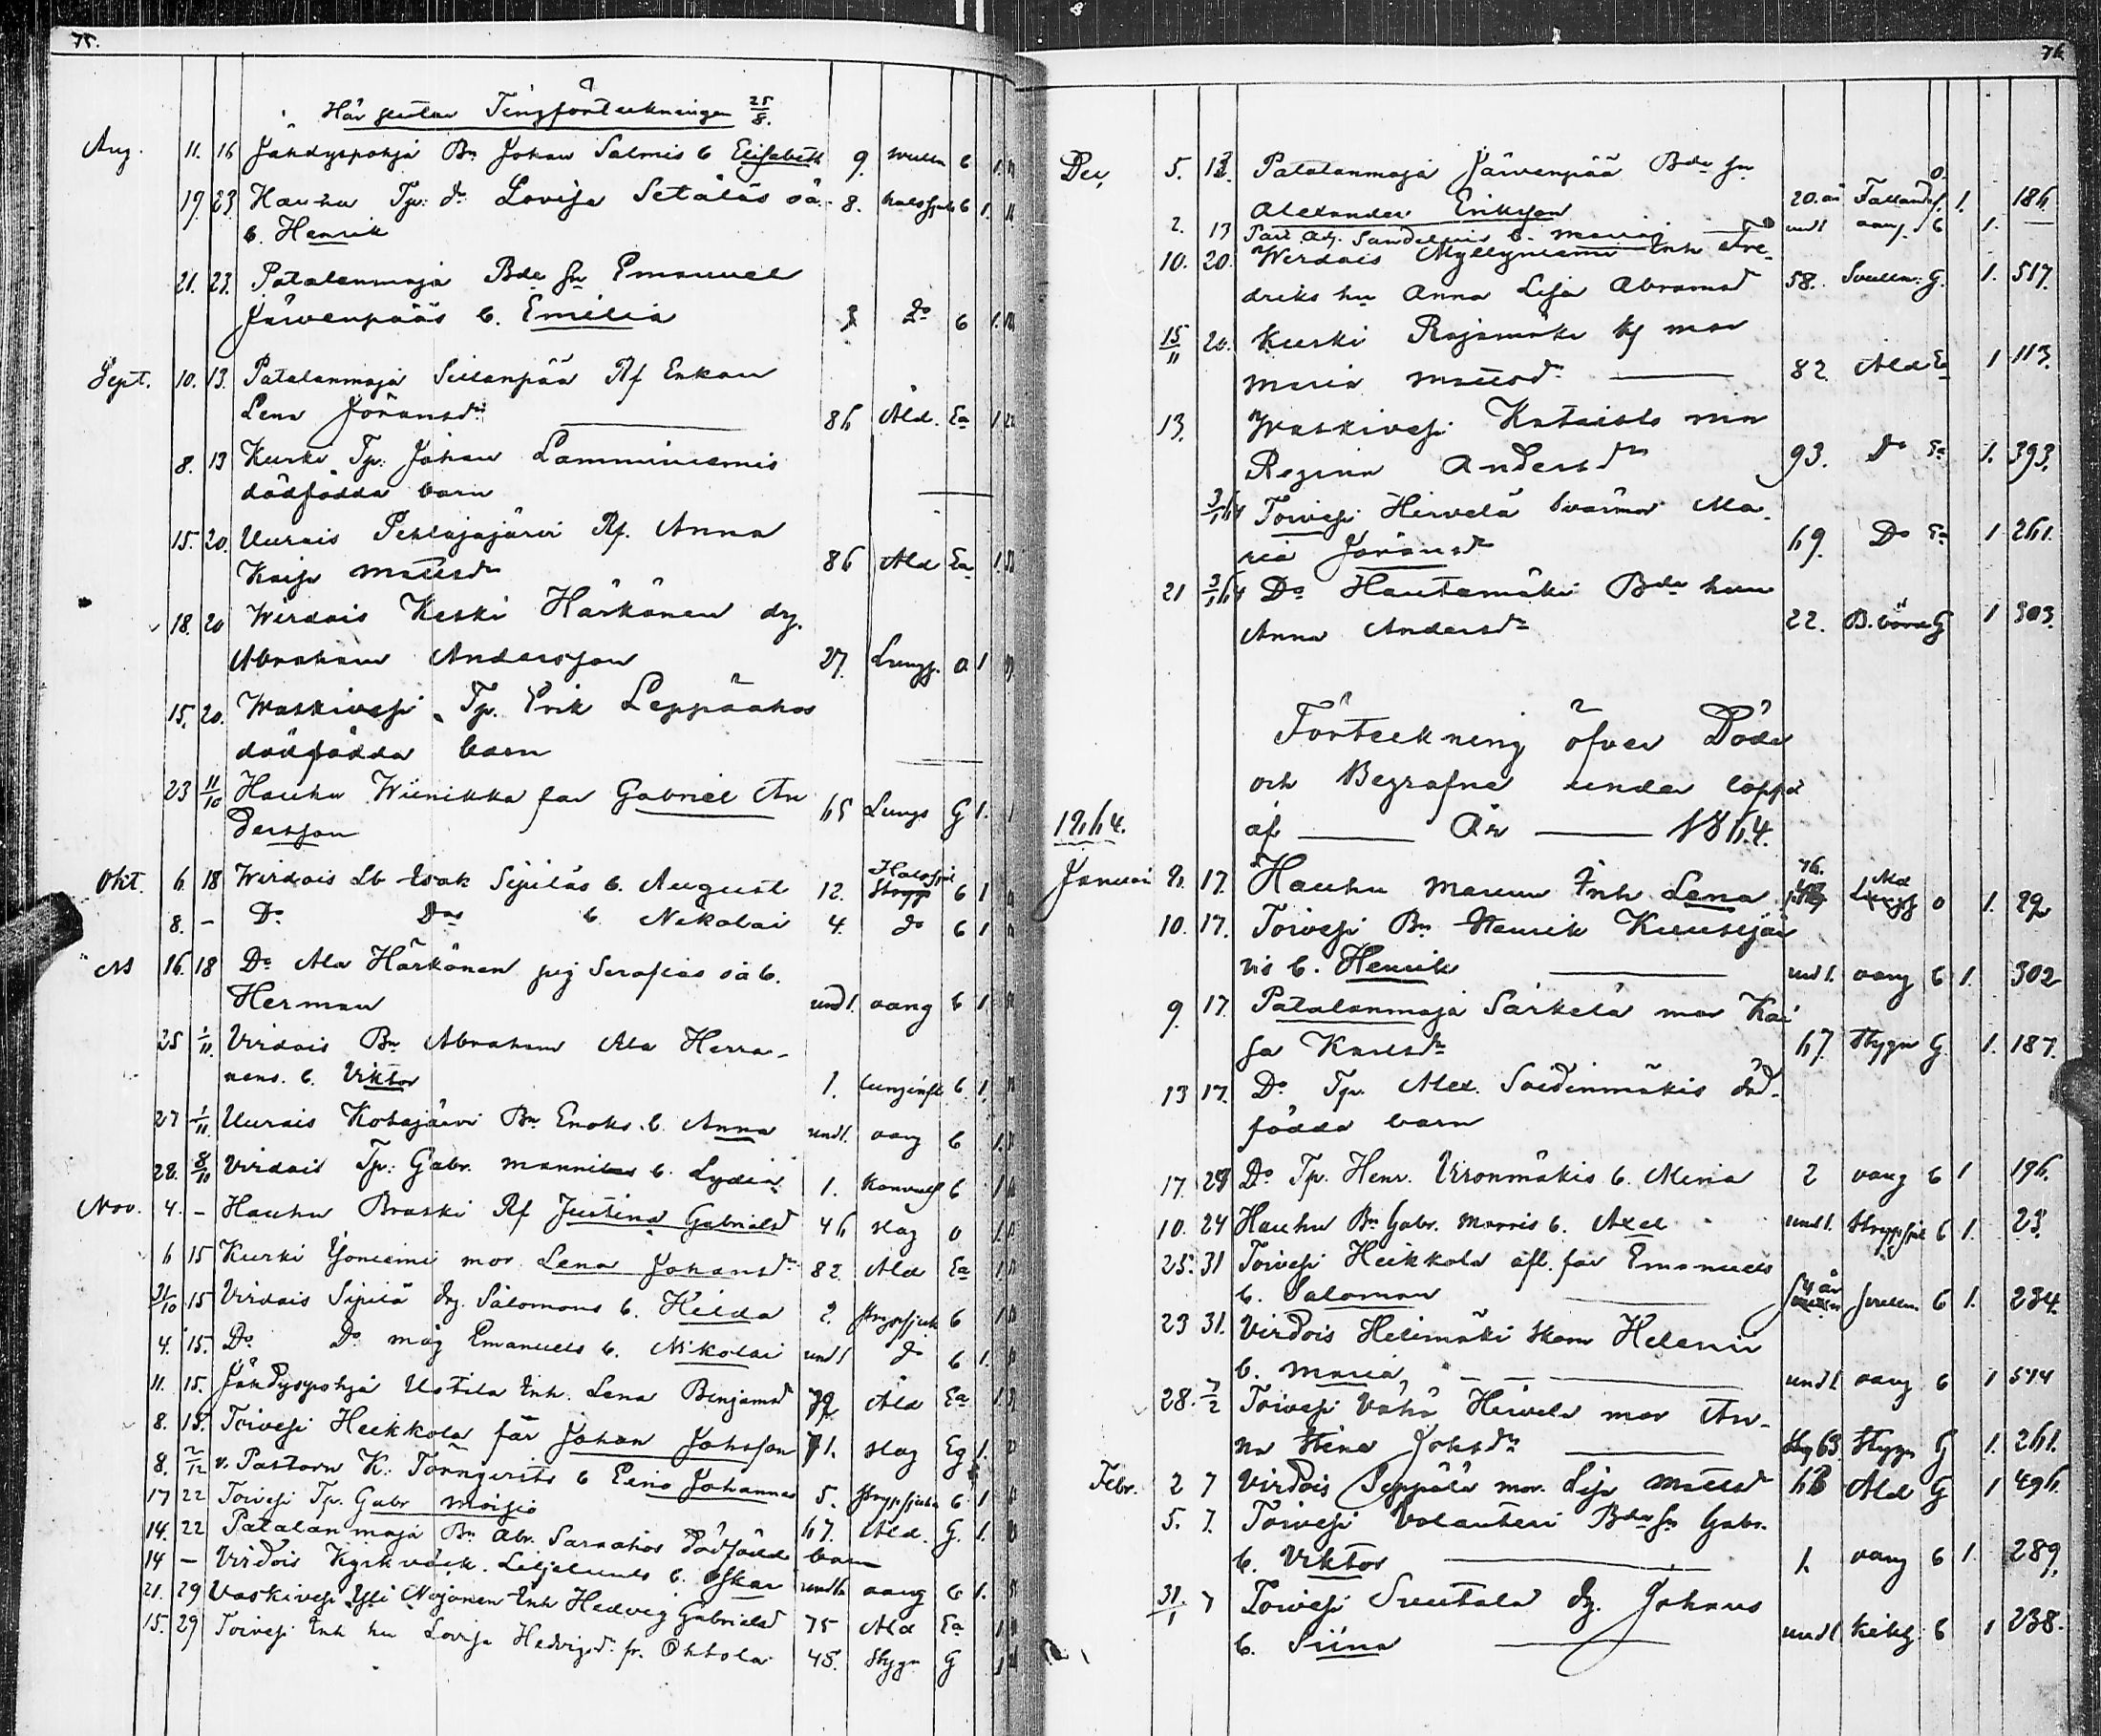 75.
Här slutar Tingförteckningen 25/8.
Aug. 11. 16 Jähdyspohja Bn Johan Salmis b Elisabeth 9. b 1.
19. 23. Hauhu Tp: dr Lovisa Setäläs oä. 8. halssjuk b 1.
b. Henrik
21. 23. Patalanmaja Bde sn Emanuel
Järvenpääs b. Emilia 3 Do b 1.
Sept. 10. 13. Patalanmaja Sillanpää Rf Enkan
Lena Göransdr 86 Åld. Ea 1
8. 13 Kurki Tp. Johan Lamminiemis
dödfödda barn
15. 20. Uurais Pehlajajärvi Rf. Anna
Kaisa Mattsdr 86 Åld Ea 1.
18. 20 Wirdois Keski Härkönen drg.
Abraham Andersson 27. Lungs. o 1
15. 20. Waskivesi Tp. Erik Leppäahos
dödfödda barn
23 11/10 Hauhu Wiinikka far Gabriel An 65 Lungs G 1.
dersson
Okt. 6. 18 Wirdois Lb Isak Sipiläs b. August 12. Halssju b 1
8. - Do Dos b. Nikolai 4. do b 1
16. 18 Do Ala Härkönen pig Serafias oä b.
Herman undl. oang b 1.
25 1/11. Virdois Bn Abraham Ala Herra-
nens. b. Viktor 1. lunginfl b 1.
27 1/11. Uurais Kotajärvi Bn Enoks. b. Anna undl. oang b 1.
28. 8/10 Virdois Tp: Gabr. Mannilas b. Lydia 1. Konvuls b 1
Nov. 4. - Hauhu Braski Rf Justina Gabrielsd 46 slag o 1.
6 15 Kurki Yoniemi mor Lena Johansdr 82. Åld Ea 1
21/10 15 Virdois Sipilä drg. Salomons b. Hilda 2. strypsjuk b 1
4. 15. Do Do måg Emanuels b. Nikolai undl do b 1.
11. 15. Jähdyspohja Ustila Inh. Lena Benjamsd Åld Ea 1.
8. 15. Toivesi Heikkola får Johan Johsson 71. slag Eg 1.
8. 2/12 v. Pastorn K. Törnqvists b Eino Johannes 5. strypsjuka b 1
17 22 Toivesi Tp. Gabr Moisio 67. Åld. G. 1.
14. 22 Patalanmaja Bn Abr. Sarnahos dödfödde barn
14 - Virdois Kyrkväck. Liljelunds b. Oskar undl. oang b 1.
21. 29 Vaskivesi Yli Nojonen Inh Hedvig Gabrielsd 75 Åld Ea 1
15. 29 Toivesi Inh hu Lovisa Hedvigsd. fr. Ohtola 48. Stygn G 1
76
Dec. 5. 13. Patalanmaja Järvenpää Bde sn
Alexander Eriksson 20. år o. 1. 186.
2. 13 Past. Adj. Sandelins b. Maria undl oang. b 1.
10. 20. Werdois Myllyniemi Inh Fre-
driks hu Anna Lisa Abramsd 58. Svulln. G. 1. 517.
15/11 20. Kurki Rajamäki Rf mor
Maria Mattsdr 82. Åld Ea 1 113.
13. Waskivesi Kataisto mor
Regina Andersdr 93. Do Ea 1. 393.
3/1 64 Toivesi Hirvelä Svärmor Ma-
ria Göransdr 69. Do Ea 1 261.
21 3/1 64 Do Hautamäki Bde hun
Anna Andersdr 22. B. börd G 1 303.
Förteckning öfver Döde
och Begrafne under loppet
1864. af År 1864.
Januari 17. Hauhu Inh Lena 76. Åld o 1. 22
10. 17. Toivesi Bn Henrik Kuusijär
vis b. Henrik undl. oang b 1. 302
9. 17. Patalanmaja Särkelä mor Kai
sa Karlsdr 67. Stygn G 1. 187.
13 17. Do Tp. Alex. Soidinmäkis död-
födda barn
17. 24 Do Tp. Henr. Vironmäkis b. Miria 2 oang b 1 196.
10. 24 Hauhu Bn Gabr. Morris b. Axel undl. strypsjuk b 1. 23.
25. 31 Toivesi Heikkola afl. får Emanuels
b. Salomon 4 år b 1. 234.
23 31. Virdois Helimäki Skom Helenii
b. Maria, undl oang b 1 544
28. 7/2 Toivesi Vähä Hirvelä mor An-
na Stina Johsdr 63. Stygn G 1. 261.
Febr. 2 7 Virdois Seppälä mor. Lisa Mattsd Åld G 1 496.
5. 7. Toivesi Volanteri Bde sn Gabr.
b. Viktor 1. oang b 1. 289.
31/1 7 Toivesi Suutala drg. Johans
b. Siina undl kikh b 1 238.